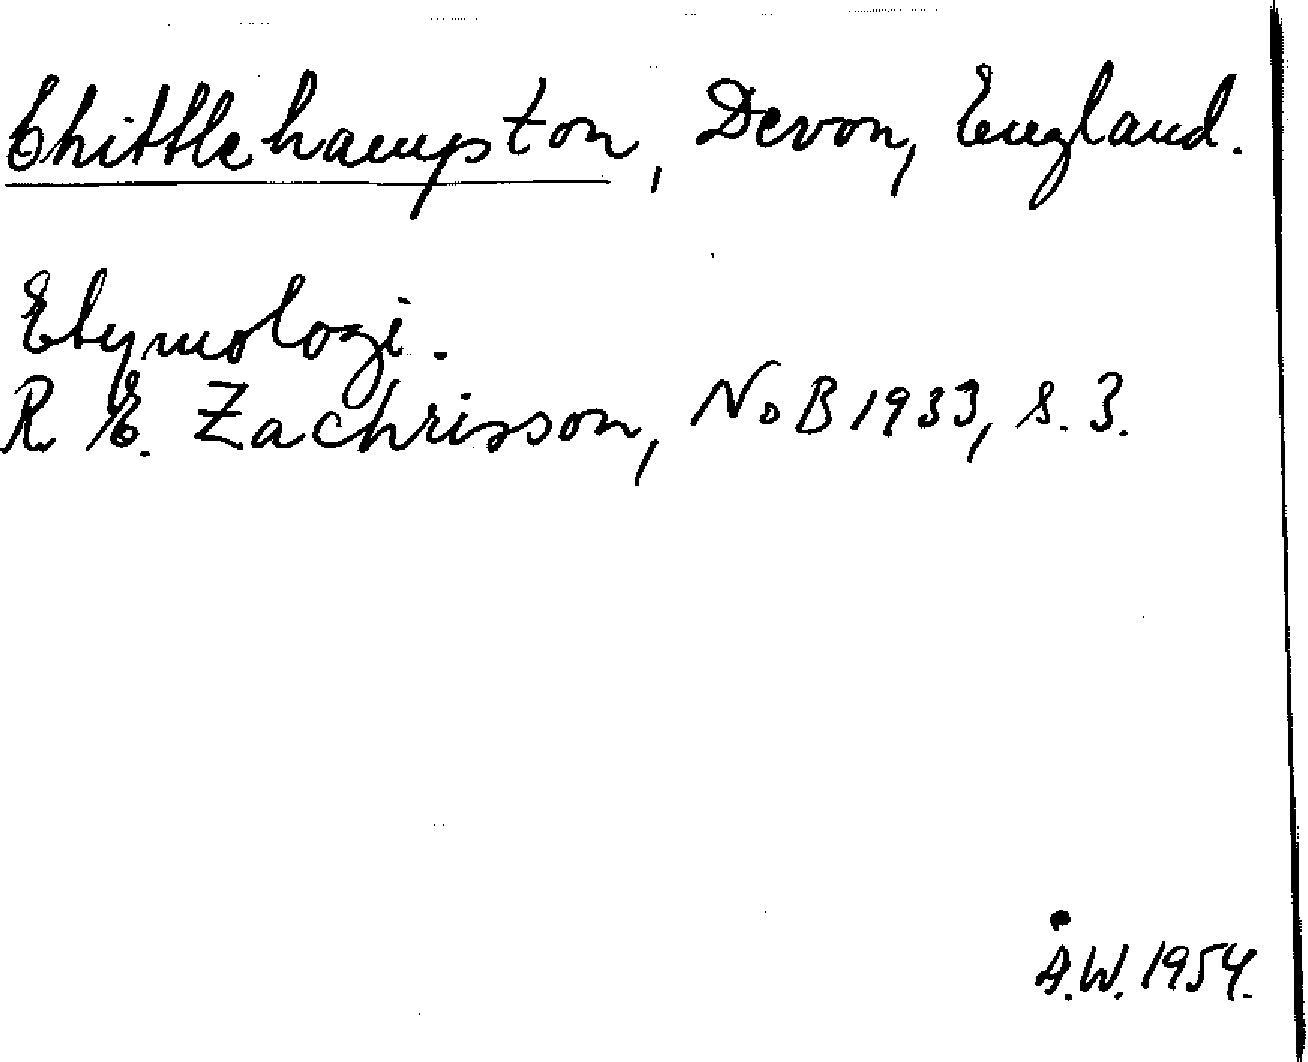 Chittlehampton, Devon, England.
Etymologi.
R. E. Zachrisson, NoB 1933, s. 3.
Å.W. 1954.